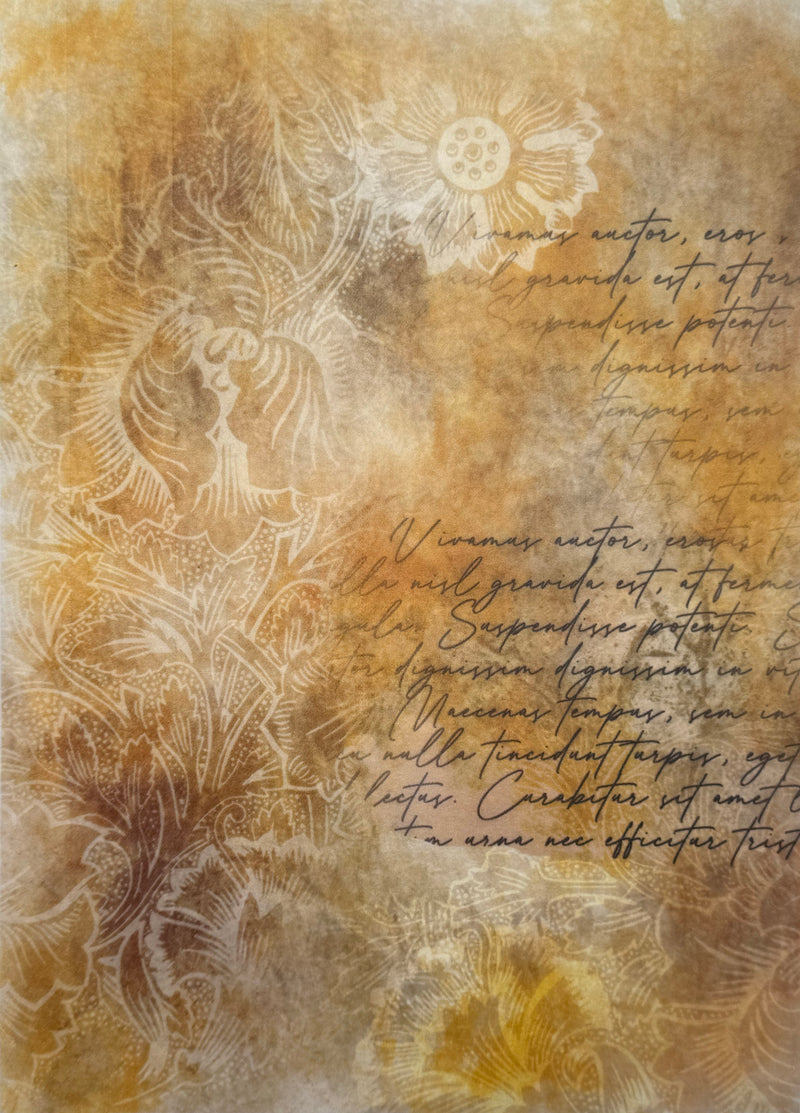 Vivamus auctor, eros
nisl gravida est, at fer
Suspendisse potenti.
dignissim in
tempus, sem
turpis,
sit ame
Vivamus auctor, eros
nisl gravida est, at ferme
gula. Suspendisse potenti. S
tor dignissim dignissim in vit
Maecenas tempus, sem in
eu nulla tincidunt turpis, eget
lectus. Curabitur sit amet
urna nec efficitur trist